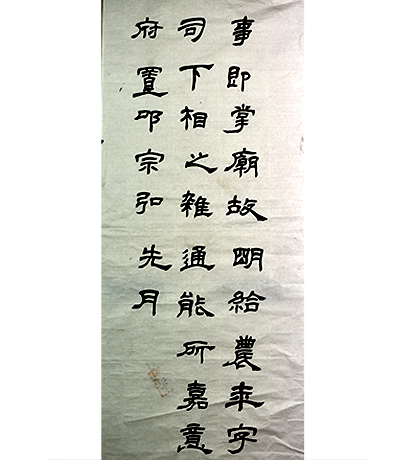 事即掌廟故明給農來字
司下相之雜通能所嘉意
府置卬宗弘先月